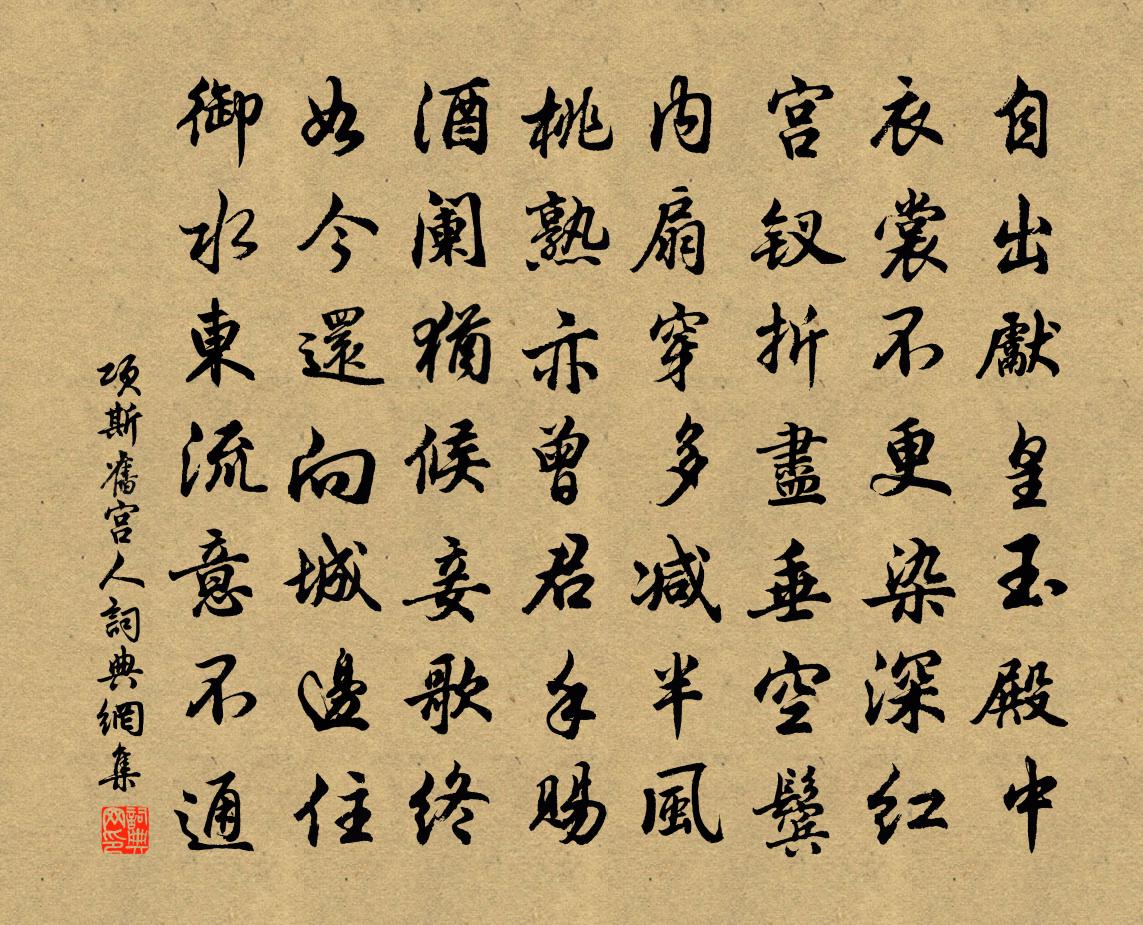 自出獻皇玉殿中
衣裳不更染深红
宫钗折盡垂空鬓
内扇穿多减半風
桃熟亦曾君手賜
酒阑猶候妾歌终
如今還向城邊住
御水東流意不通
项斯舊宫人詞典網集
詞典网印